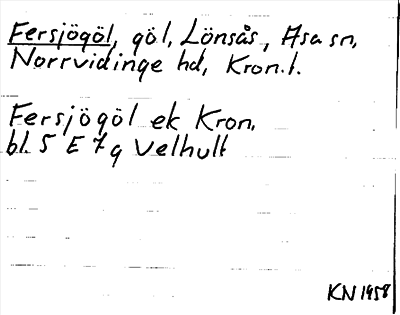 Fersjögöl, göl, Lönsås, Asa sn,
Norrvidinge hd, Kron. l.
Fersjögöl ek Kron.
bl. 5 E 7 g Velhult
KN 1958